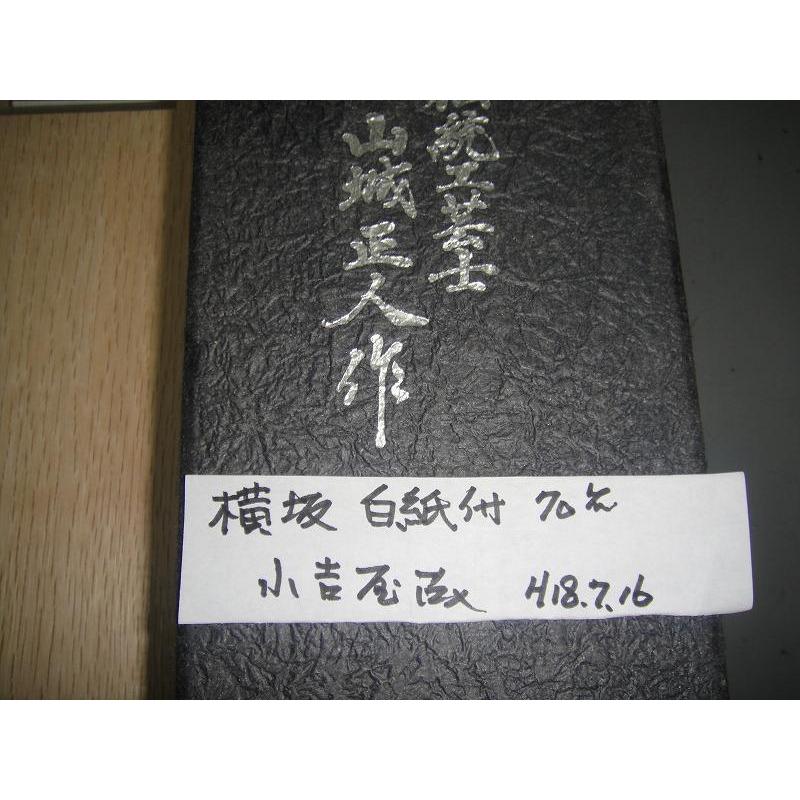 統工芸士
山城正人作
横坂 白紙付 70%
小吉屋蔵 H18.7.16